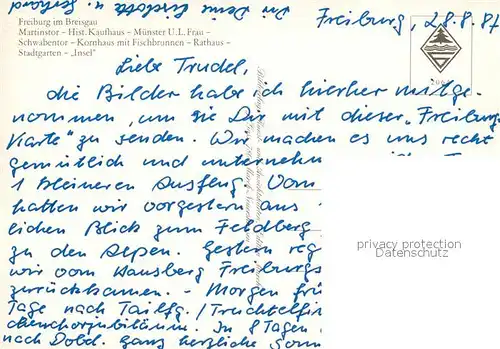 Dir Deine Liselotte u. Gerhard
Freiburg im Breisgau
Martinstor – Hist. Kaufhaus – Münster U. L. Frau –
Schwabentor – Kornhaus mit Fischbrunnen – Rathaus –
Stadtgarten – „Insel"
Freiburg, 28.8.87
Liebe Trudel,
die Bilder habe ich hierher mitge-
nommen, um sie Dir mit dieser „Freiburg
Karte" zu senden. Wir machen es uns recht
gemütlich und unternehm
1 kleineren Ausflug. Vom
hatten wir vorgestern aus
lichen Blick zum Feldberg
zu den Alpen. Gestern reg
wir vom Hausberg Freiburgs
zurückkamen. – Morgen frü
Tage nach Tailfg. / Truchtelfin
chenchorjubiläum. In 8 Tagen
nach Dobel. Ganz herzliche
privacy protection
Datenschutz